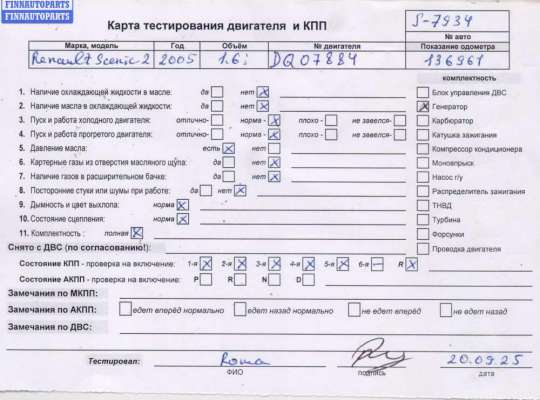 FINNAUTOPARTS
FINNAUTOPARTS
Карта тестирования двигателя и КПП
S-7934
№ авто
Марка, модель Год Объём № двигателя Показание одометра
Renault Scenic 2 2005 1.6i DQ07884 136961
комплектность
1. Наличие охлаждающей жидкости в масле: да нет X Блок управления ДВС
2. Наличие масла в охлаждающей жидкости: да нет X X Генератор
3. Пуск и работа холодного двигателя: отлично- норма - X плохо - не завелся- Карбюратор
4. Пуск и работа прогретого двигателя: отлично- норма - X плохо - не завелся- Катушка зажигания
5. Давление масла: есть X нет Компрессор кондиционера
6. Картерные газы из отверстия масляного щупа: да нет X Моновпрыск
7. Наличие газов в расширительном бачке: да нет X Насос г/у
8. Посторонние стуки или шумы при работе: да нет X Распределитель зажигания
9. Дымность и цвет выхлопа: норма X ТНВД
10. Состояние сцепления: норма X Турбина
11. Комплектность : полная X Форсунки
Снято с ДВС (по согласованию!): Проводка двигателя
Состояние КПП - проверка на включение: 1-я X 2-я X 3-я X 4-я X 5-я X 6-я - R X
Состояние АКПП - проверка на включение: P R N D
Замечания по МКПП:
Замечания по АКПП: едет вперёд нормально едет назад нормально не едет вперёд не едет назад
Замечания по ДВС:
Тестировал: Roma 20.09.25
ФИО подпись дата